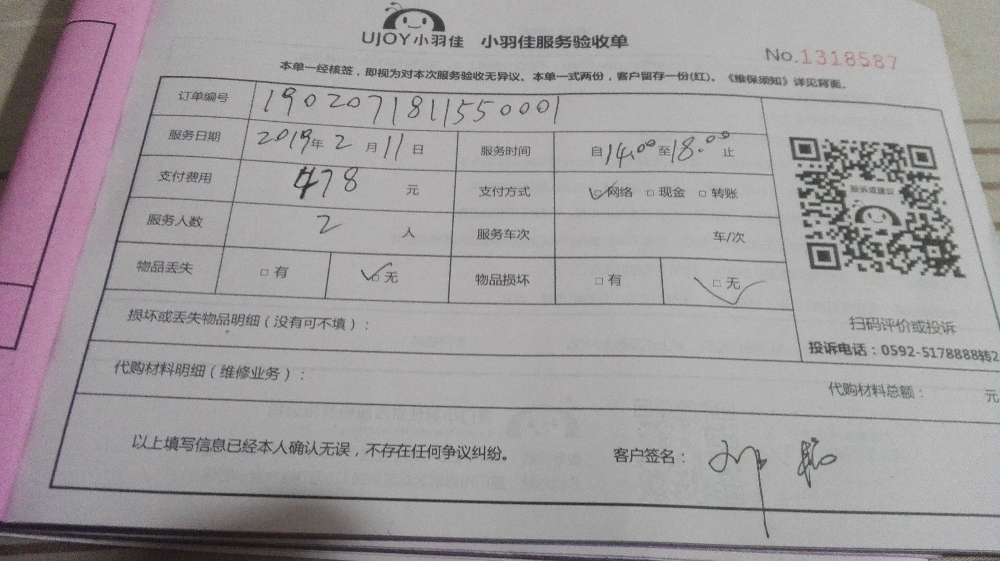 UJOY小羽佳 小羽佳服务验收单
No.1318587
本单一经核签，即视为对本次服务验收无异议。本单一式两份，客户留存一份(红)、《维保须知》详见背面。
订单编号 1902071811550001
服务日期 2019年2月11日 服务时间 自14:00至18:00止
支付费用 478元 支付方式 ☑网络 □现金 □转账
服务人数 2人 服务车次 车/次
物品丢失 □有 ☑无 物品损坏 □有 ☑无
损坏或丢失物品明细（没有可不填）：
扫码评价或投诉
投诉电话：0592-5178888转2
代购材料明细（维修业务）： 代购材料总额： 元
以上填写信息已经本人确认无误，不存在任何争议纠纷。 客户签名：